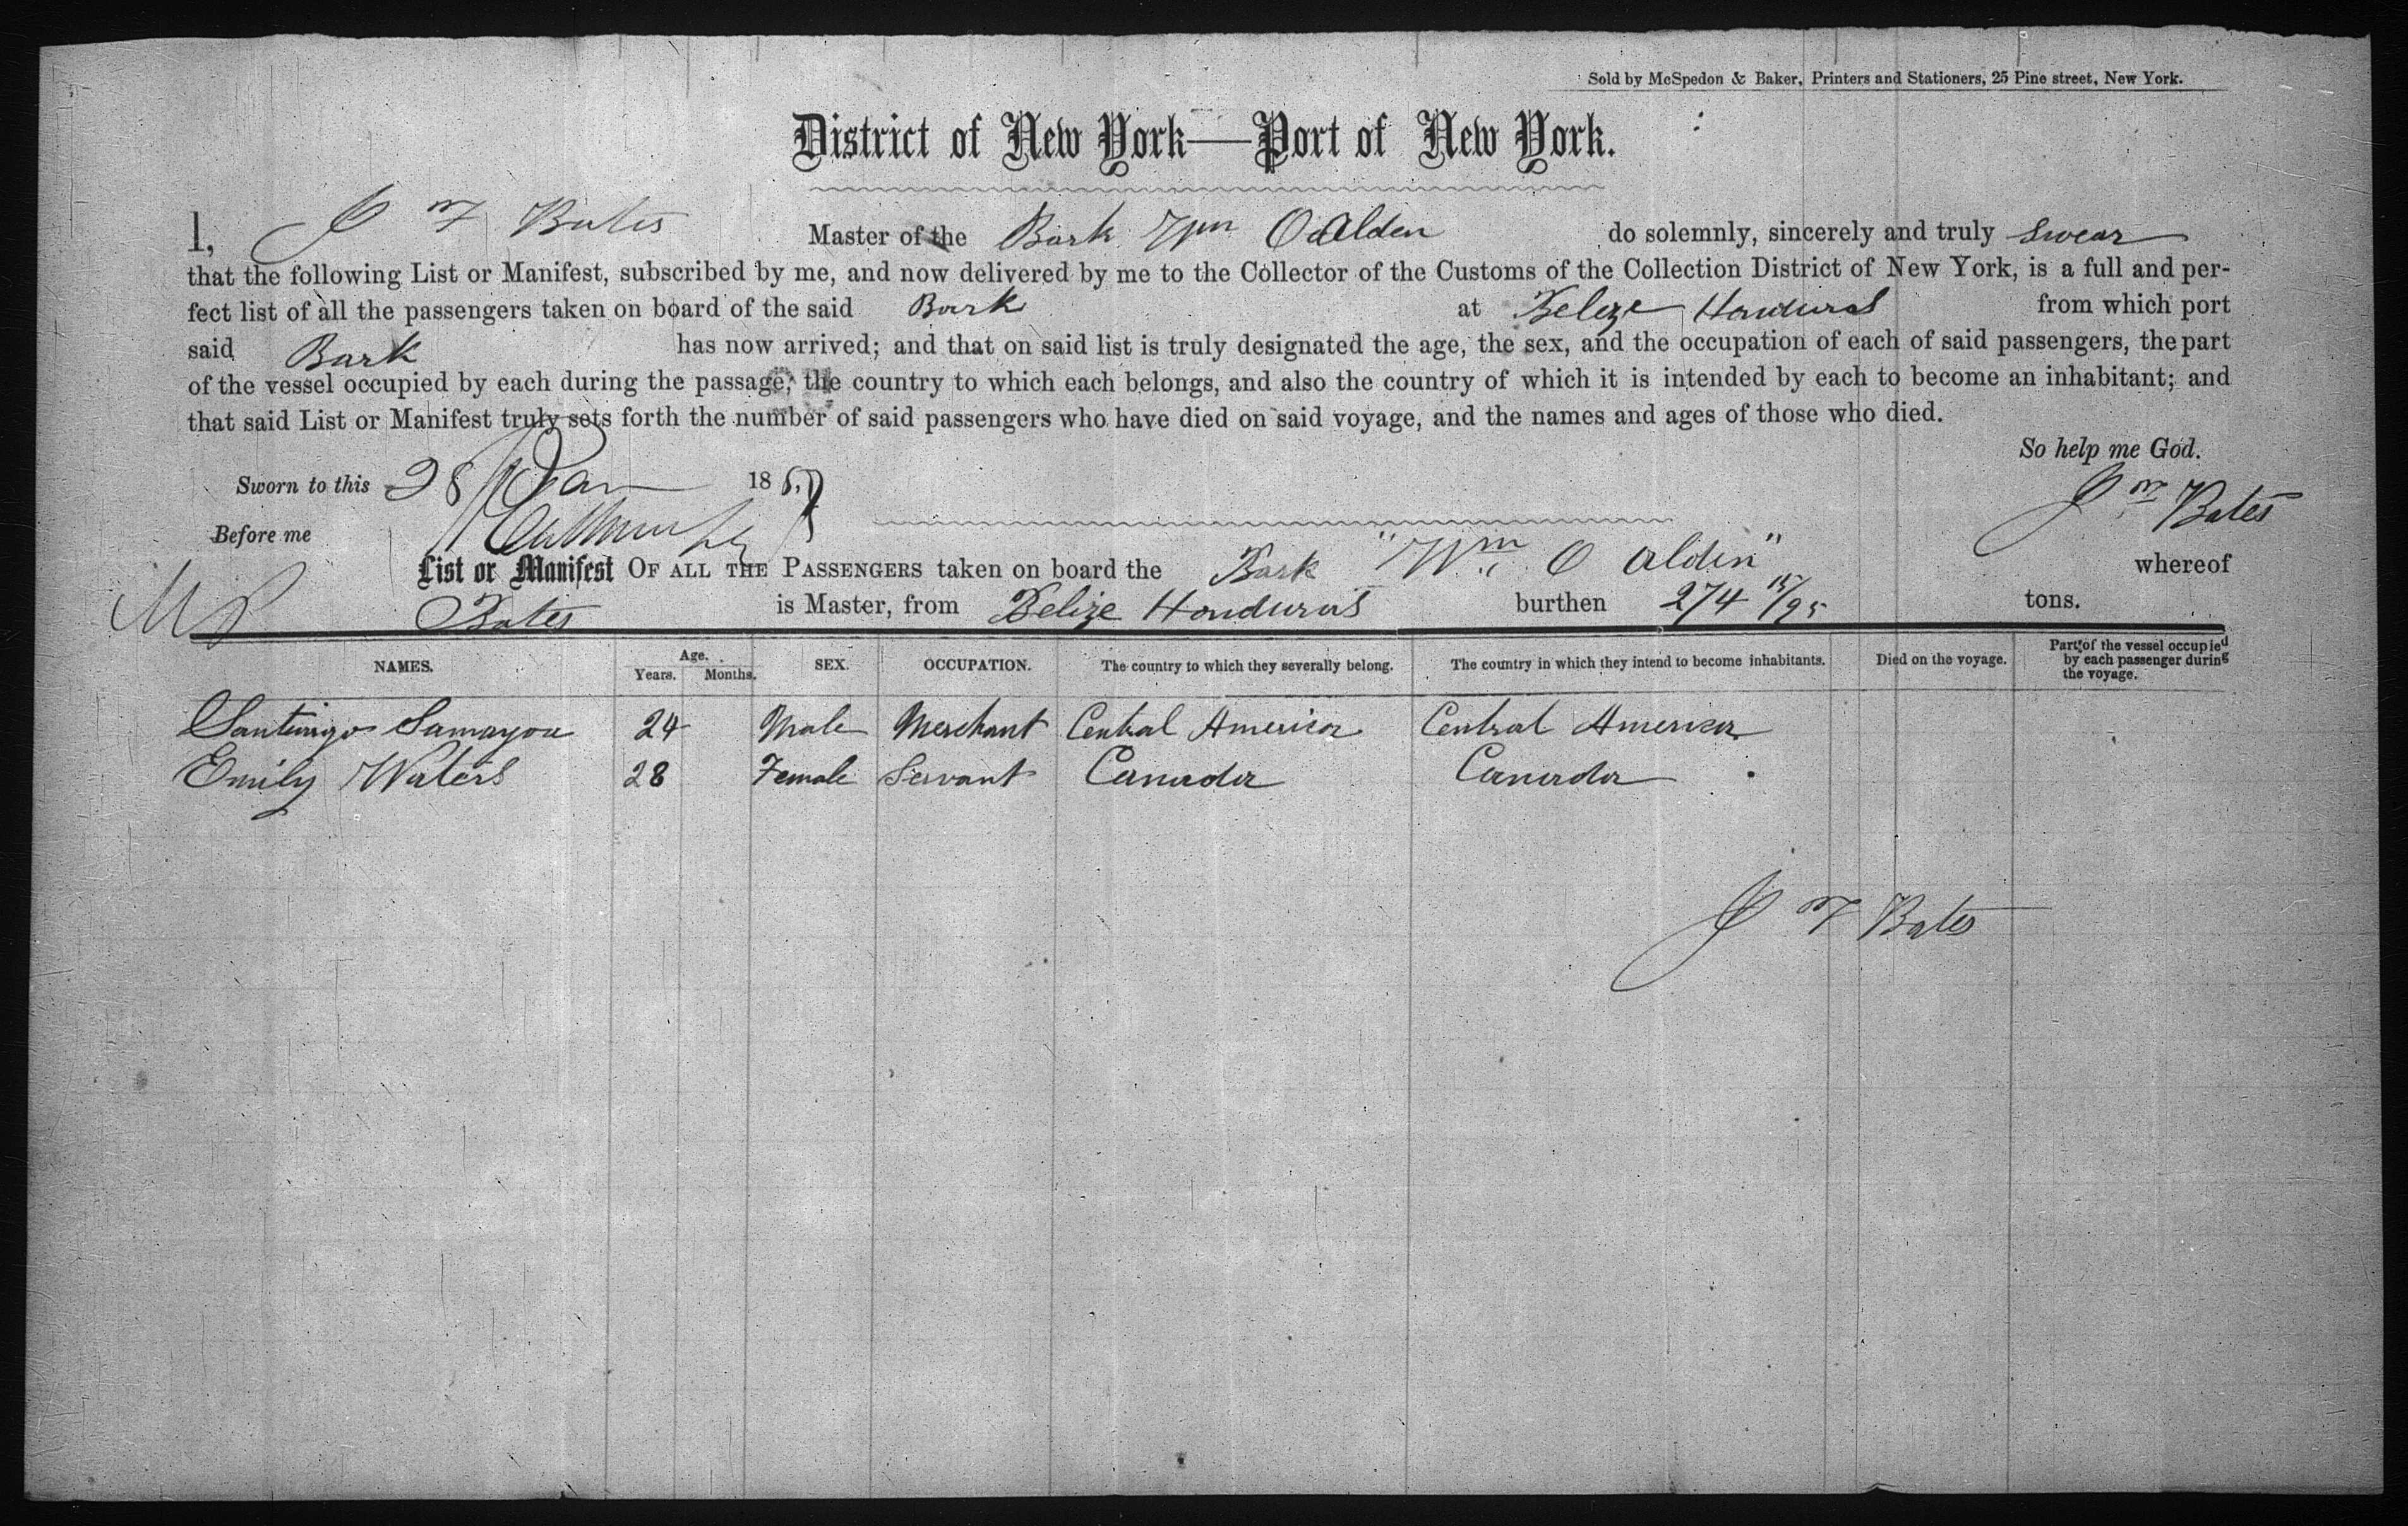 Sold by McSpedon & Baker, Printers and Stationers, 25 Pine street, New York.
District of New York—Port of New York.
I, J M F Bates Master of the Bark Wm O Alden do solemnly, sincerely and truly swear
that the following List or Manifest, subscribed by me, and now delivered by me to the Collector of the Customs of the Collection District of New York, is a full and per-
fect list of all the passengers taken on board of the said Bark at Belize Honduras from which port
said Bark has now arrived; and that on said list is truly designated the age, the sex, and the occupation of each of said passengers, the part
of the vessel occupied by each during the passage, the country to which each belongs, and also the country of which it is intended by each to become an inhabitant; and
that said List or Manifest truly sets forth the number of said passengers who have died on said voyage, and the names and ages of those who died.
So help me God.
Sworn to this 28 Jan 186
Before me
Bates
List or Manifest OF ALL THE PASSENGERS taken on board the Bark "Wm O Alden" whereof
Bates is Master, from Belize Honduras burthen 274 15/95 tons.
NAMES. Age. Years. Months. SEX. OCCUPATION. The country to which they severally belong. The country in which they intend to become inhabitants. Died on the voyage. Part of the vessel occupied by each passenger during the voyage.
Santiago Samayoa 24 Male Merchant Central America Central America
Emily Waters 28 Female Servant Canada Canada
J M F Bates